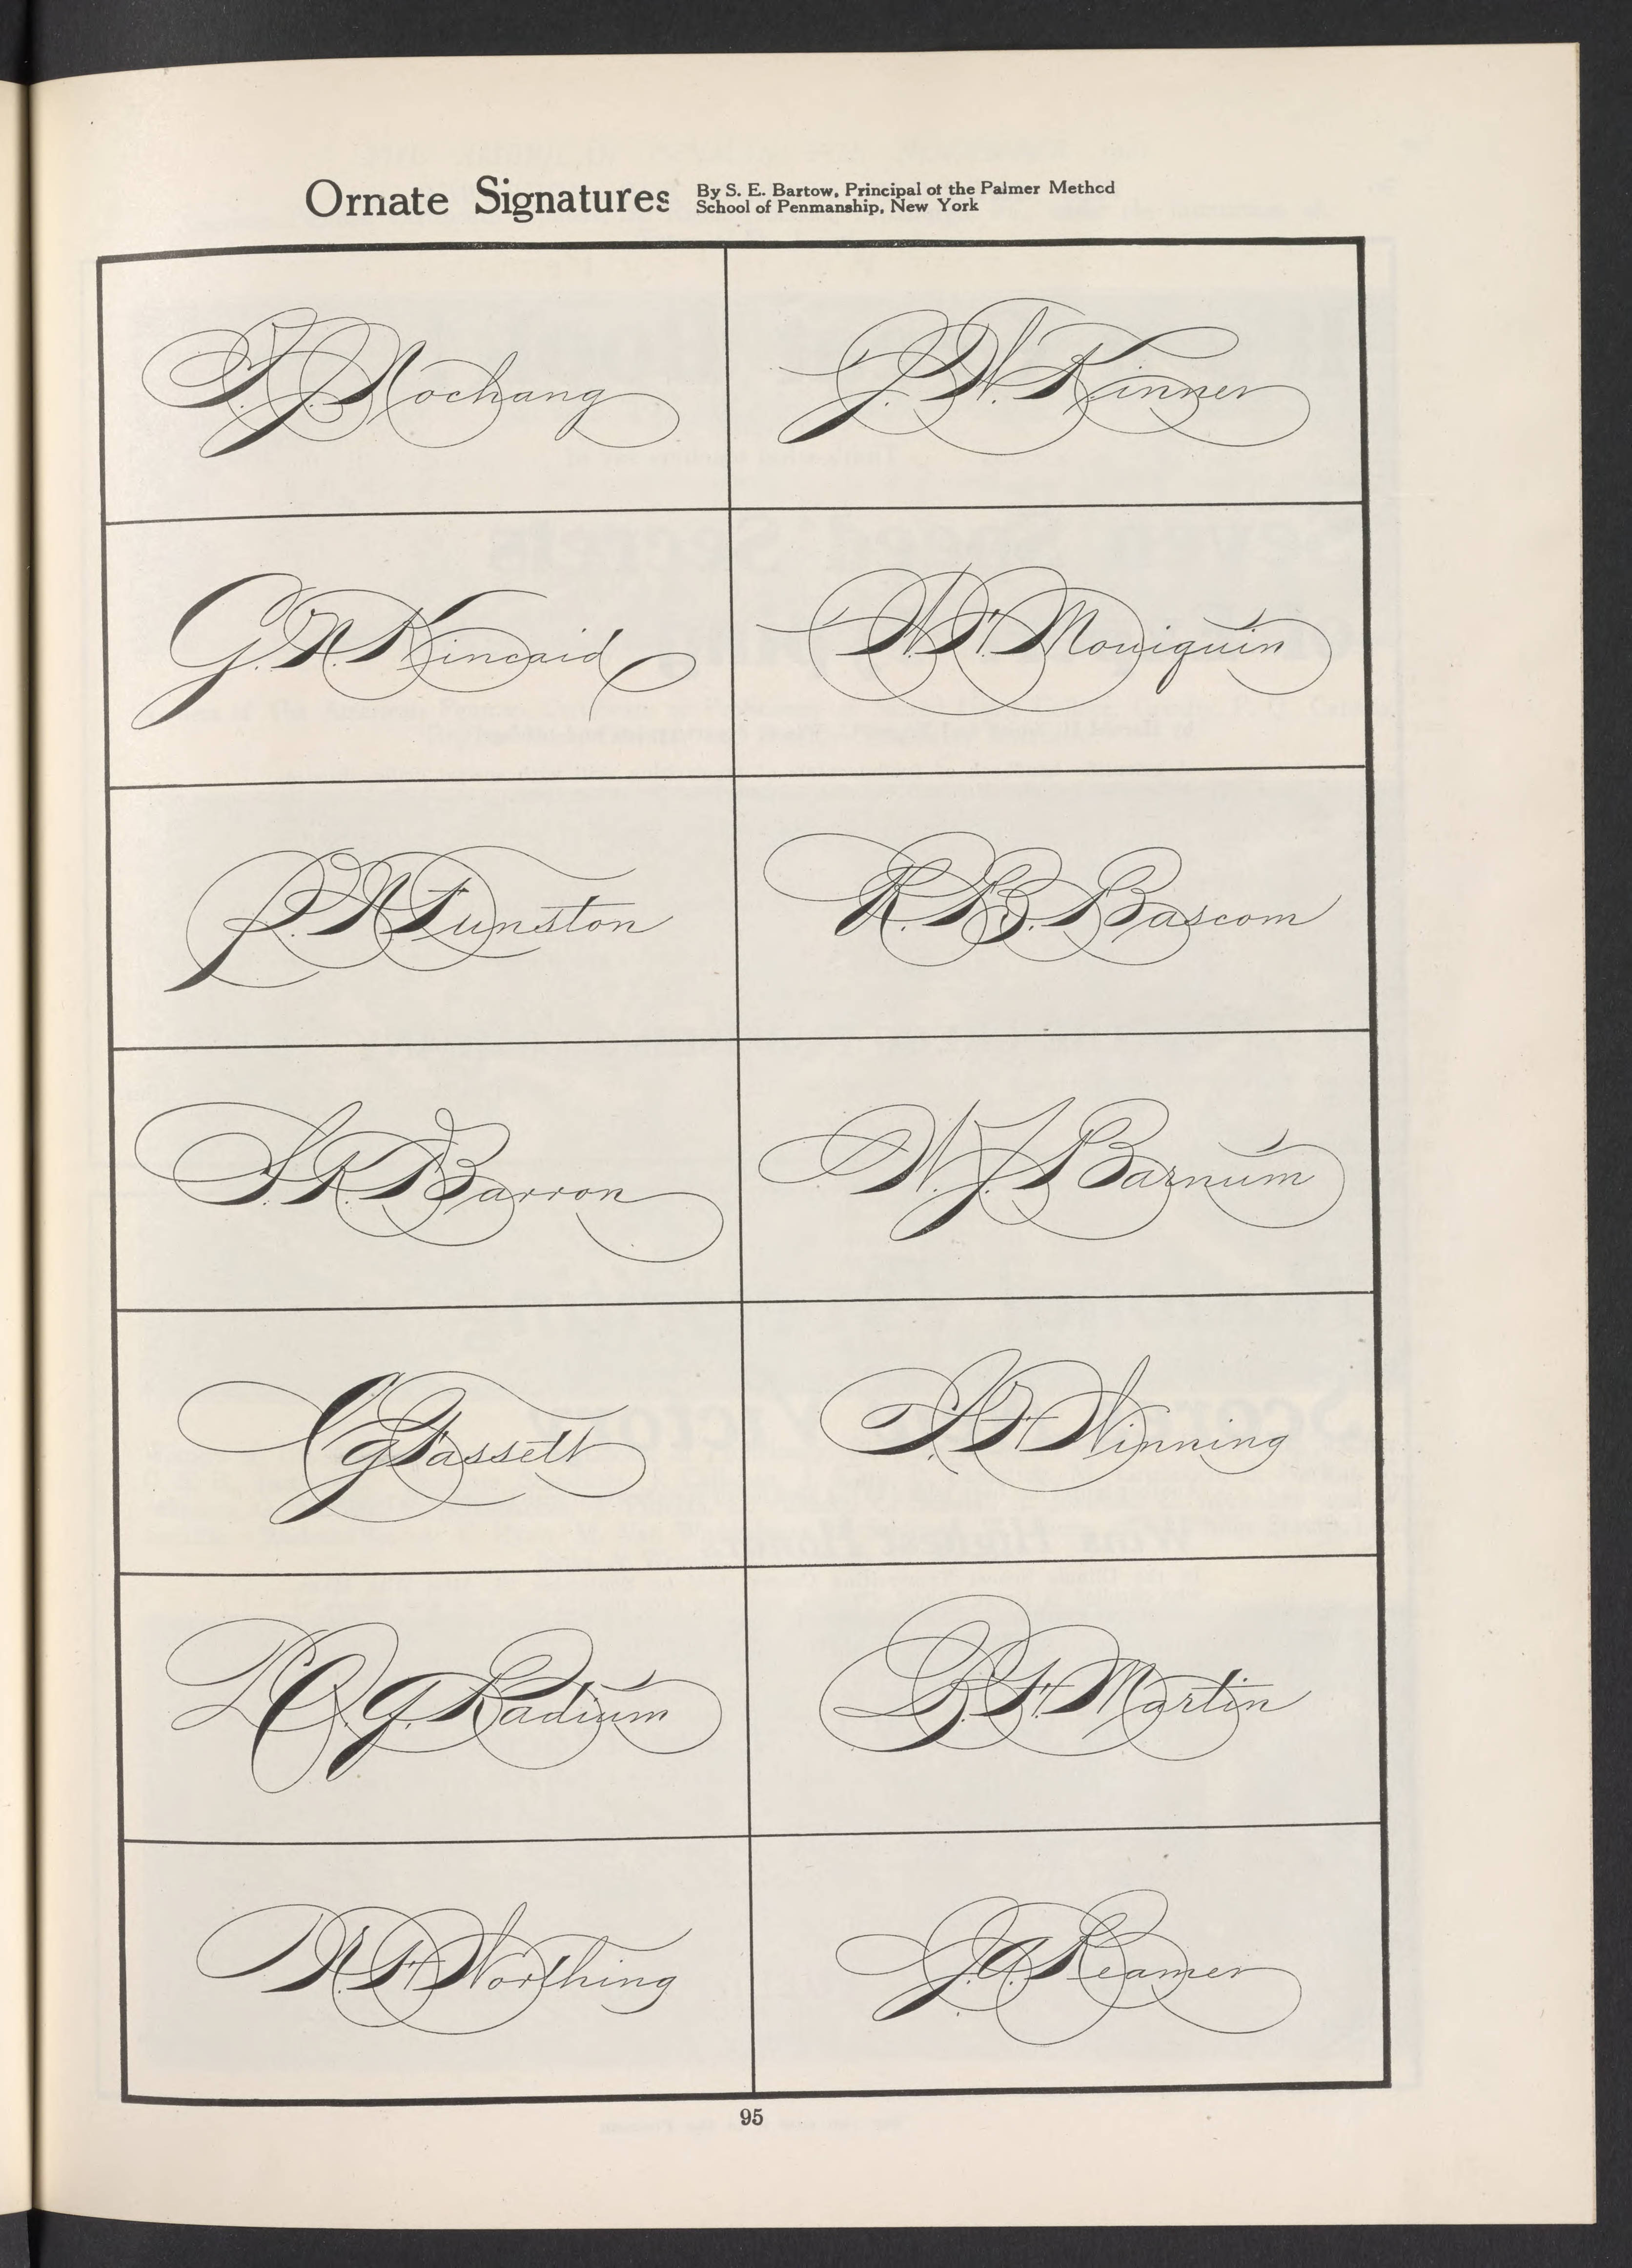 Ornate Signatures
By S. E. Bartow, Principal of the Palmer Method
School of Penmanship, New York
Nochang
J. W. Kinner
G. N. Kincaid
Mouiquin
P. N. Funston
R. B. Bascom
S. K. Barron
W. J. Barnum
C G Fassett
Winning
O. G. Radium
F. Martin
N. H. Worthing
J. A. Reamer
95